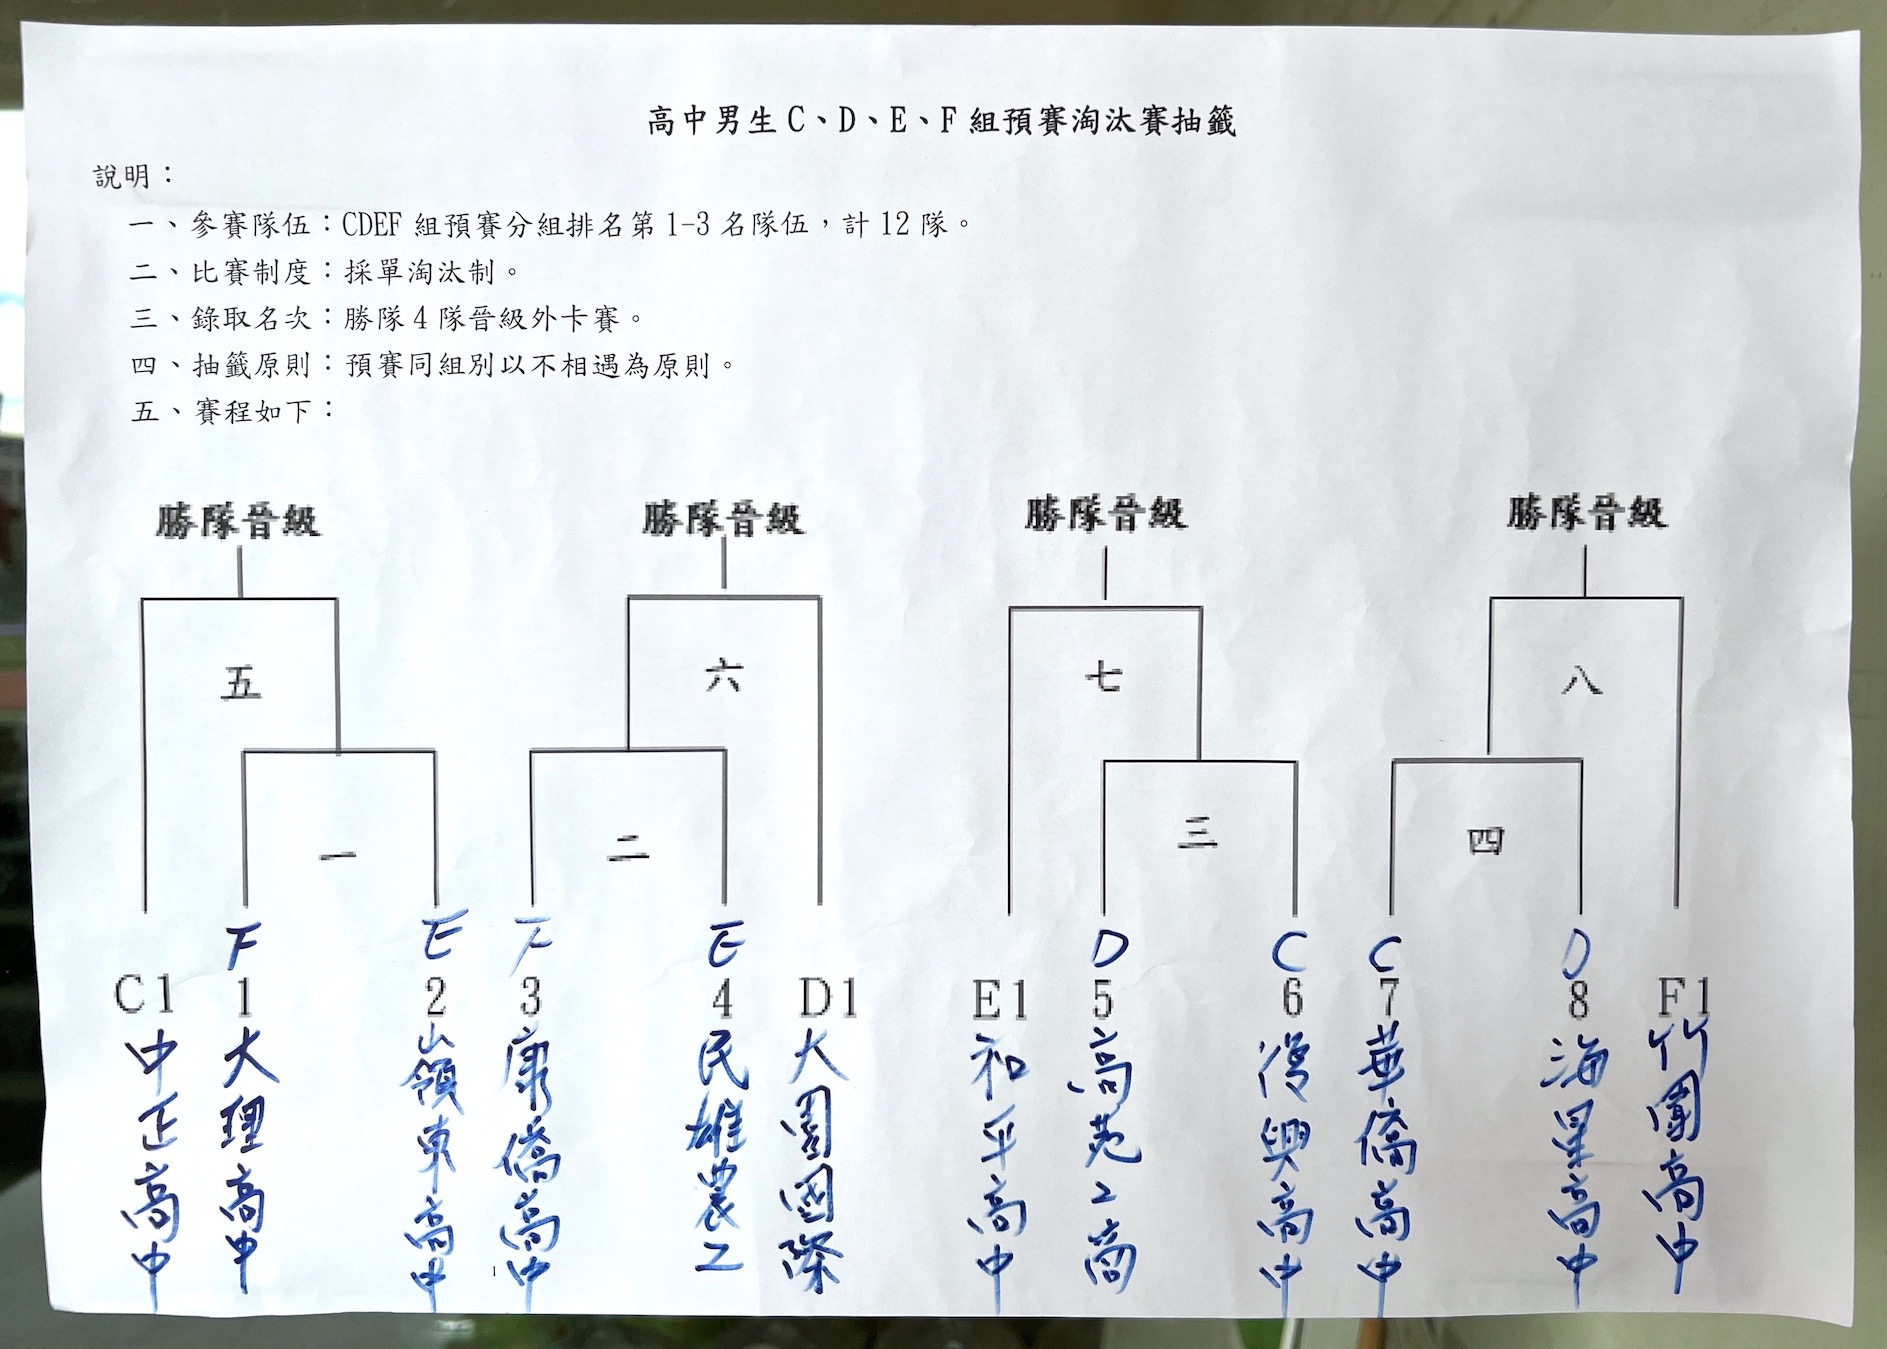 高中男生C、D、E、F組預賽淘汰賽抽籤
說明：
一、參賽隊伍：CDEF組預賽分組排名第1-3名隊伍，計12隊。
二、比賽制度：採單淘汰制。
三、錄取名次：勝隊4隊晉級外卡賽。
四、抽籤原則：預賽同組別以不相遇為原則。
五、賽程如下：
勝隊晉級 勝隊晉級 勝隊晉級 勝隊晉級
五 六 七 八
一 二 三 四
F E F E D C C D
C1 1 2 3 4 D1 E1 5 6 7 8 F1
中正高中
大理高中
嶺東高中
康僑高中
民雄農工
大園國際
和平高中
高苑工商
復興高中
華僑高中
海星高中
竹圍高中